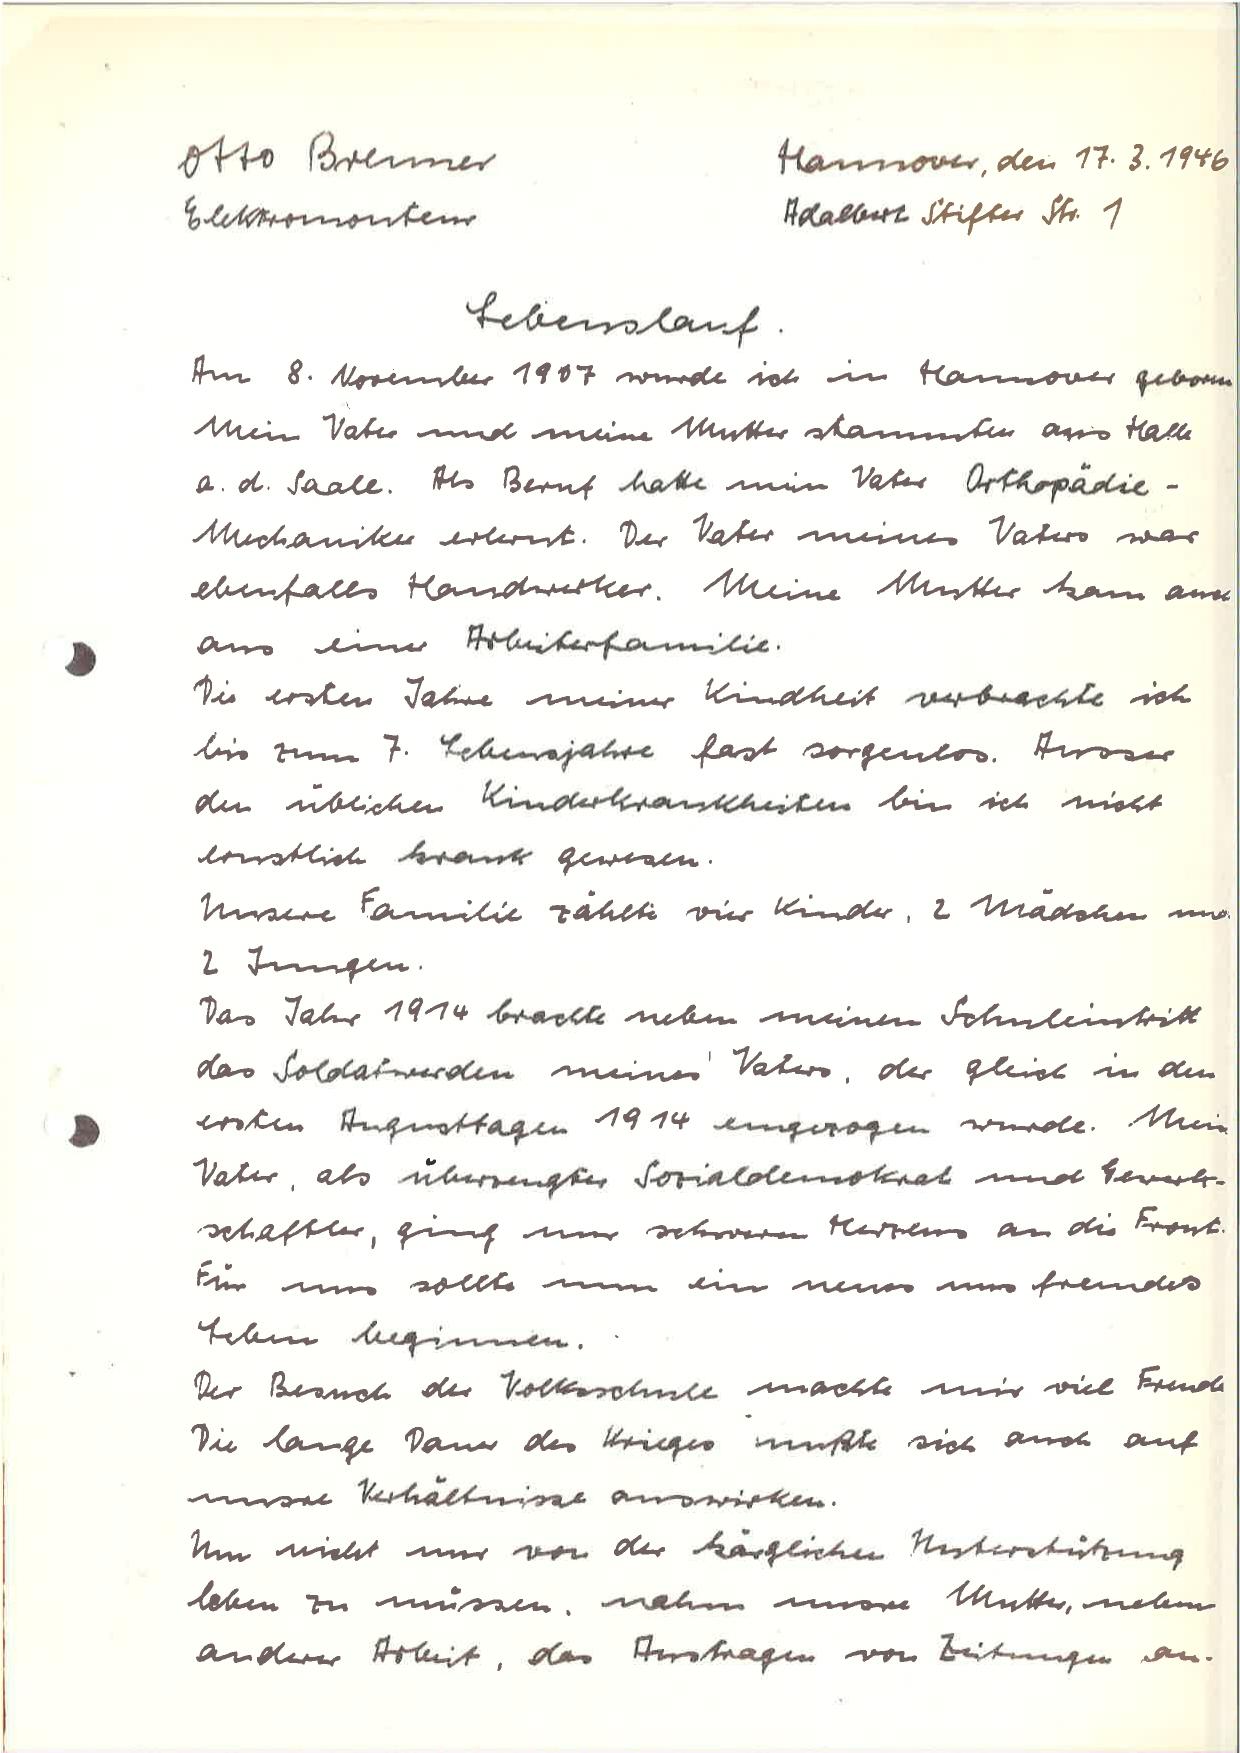 Otto Brenner
Hannover, den 17. 3. 1946
Elektromonteur
Adalbert Stifter Str. 1
Lebenslauf.
Am 8. November 1907 wurde ich in Hannover geboren
Mein Vater und meine Mutter stammten aus Halle
a. d. Saale. Als Beruf hatte mein Vater Orthopädie-
Mechaniker erlernt. Der Vater meines Vaters war
ebenfalls Handwerker. Meine Mutter kam auch
aus einer Arbeiterfamilie.
Die ersten Jahre meiner Kindheit verbrachte ich
bis zum 7. Lebensjahre fast sorgenlos. Ausser
den üblichen Kinderkrankheiten bin ich nicht
ernstlich krank gewesen.
Unsere Familie zählte vier Kinder, 2 Mädchen und
2 Jungen.
Das Jahr 1914 brachte neben meinen Schuleintritt
das Soldatwerden meines Vaters, der gleich in den
ersten Augusttagen 1914 eingezogen wurde. Mein
Vater, als überzeugter Sozialdemokrat und Gewerk-
schaftler, ging nur schweren Herzens an die Front.
Für uns sollte nun ein neues uns fremdes
Leben beginnen.
Der Besuch der Volksschule machte mir viel Freude
Die lange Dauer des Krieges mußte sich auch auf
unsre Verhältnisse auswirken.
Um nicht nur von der kärglichen Unterstützung
leben zu müssen, nahm unsre Mutter, neben
anderer Arbeit, das Austragen von Zeitungen an.